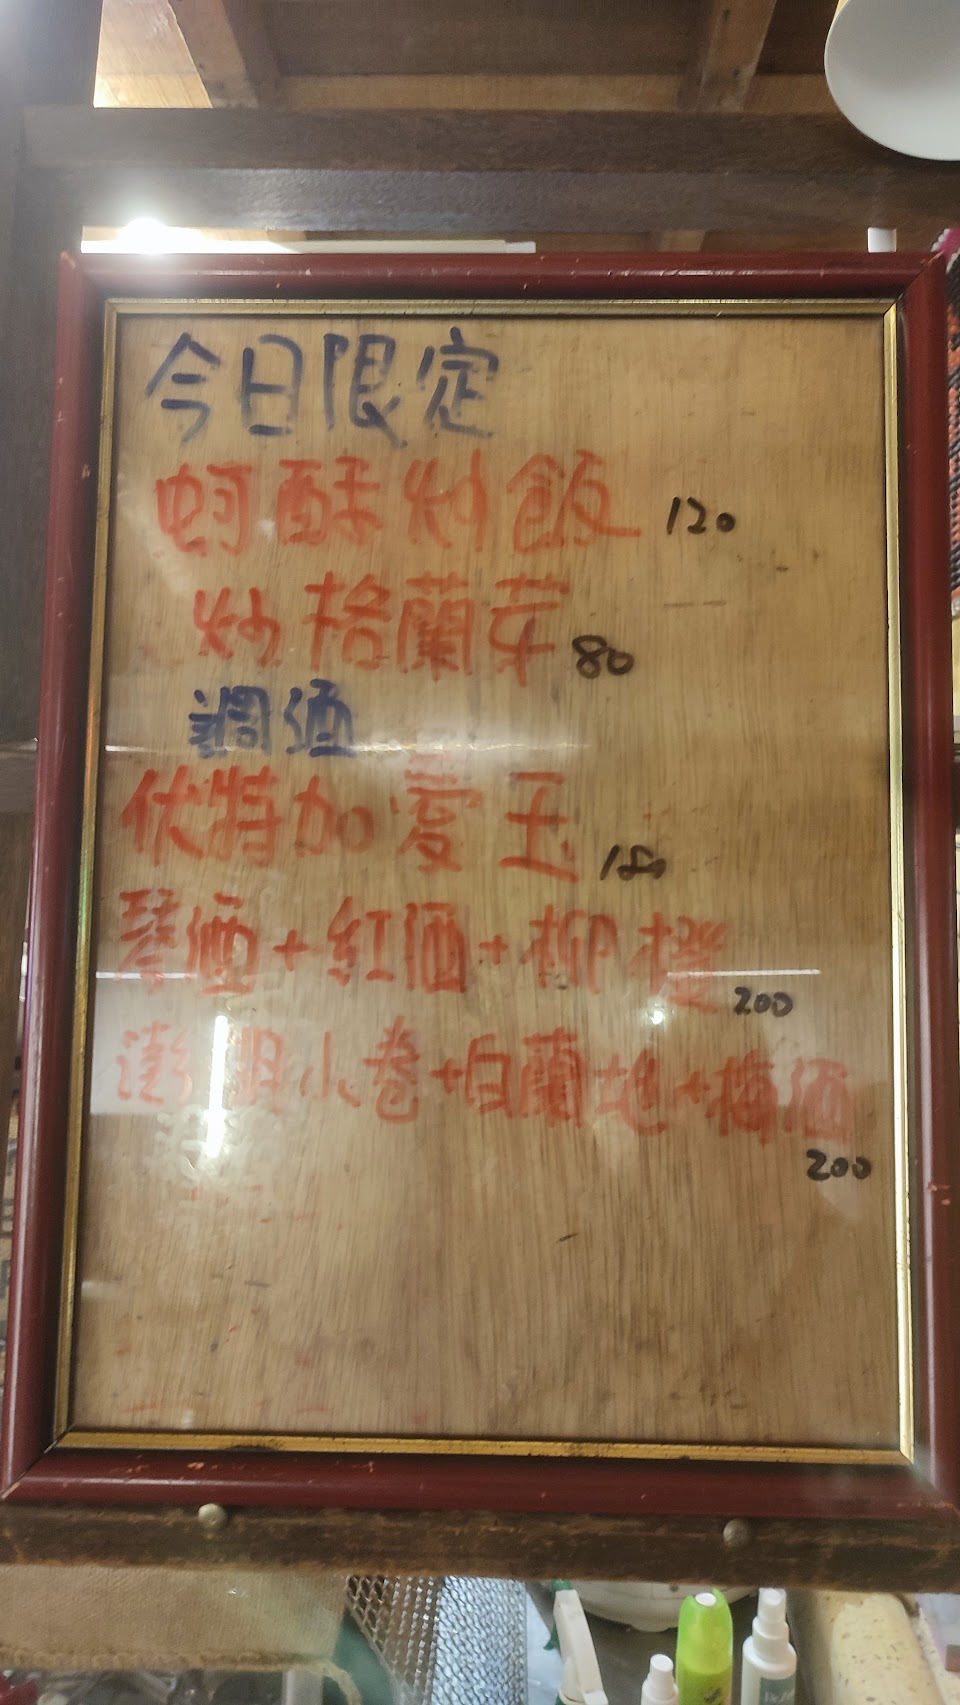 今日限定
蚵酥炒飯 120
炒格蘭芽 80
調酒
伏特加愛玉 180
琴酒+紅酒+柳橙 200
澎湖小卷+白蘭地+梅酒
200